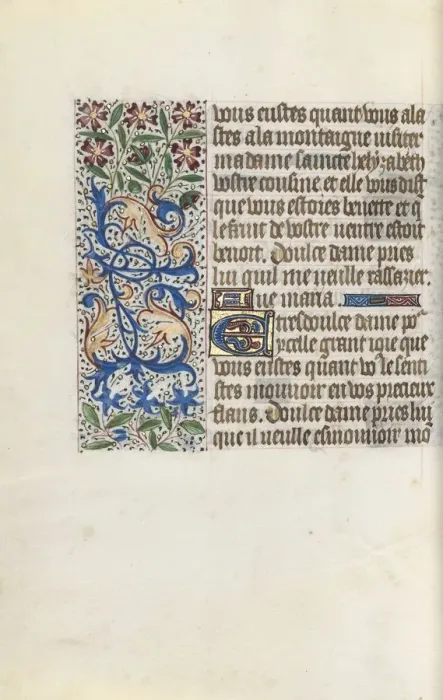 vous eustes quant vous ala
stes a la montaigne visiter
ma dame saincte helyzabeth
vostre cousine et elle vous dist
que vous estoies benette et q̄
le fruit de vostre ventre estoit
benoit. Doulce dame pries
lui quil me veulle rassasier.
Aue maria.
E tresdoulce dame po᷑
ycelle grant ioie que
vous eustes quant vo⁹ le senti
stes mouuoir en vos precieux
flans. Doulce dame pries lui
que il veulle esmouuoir mō